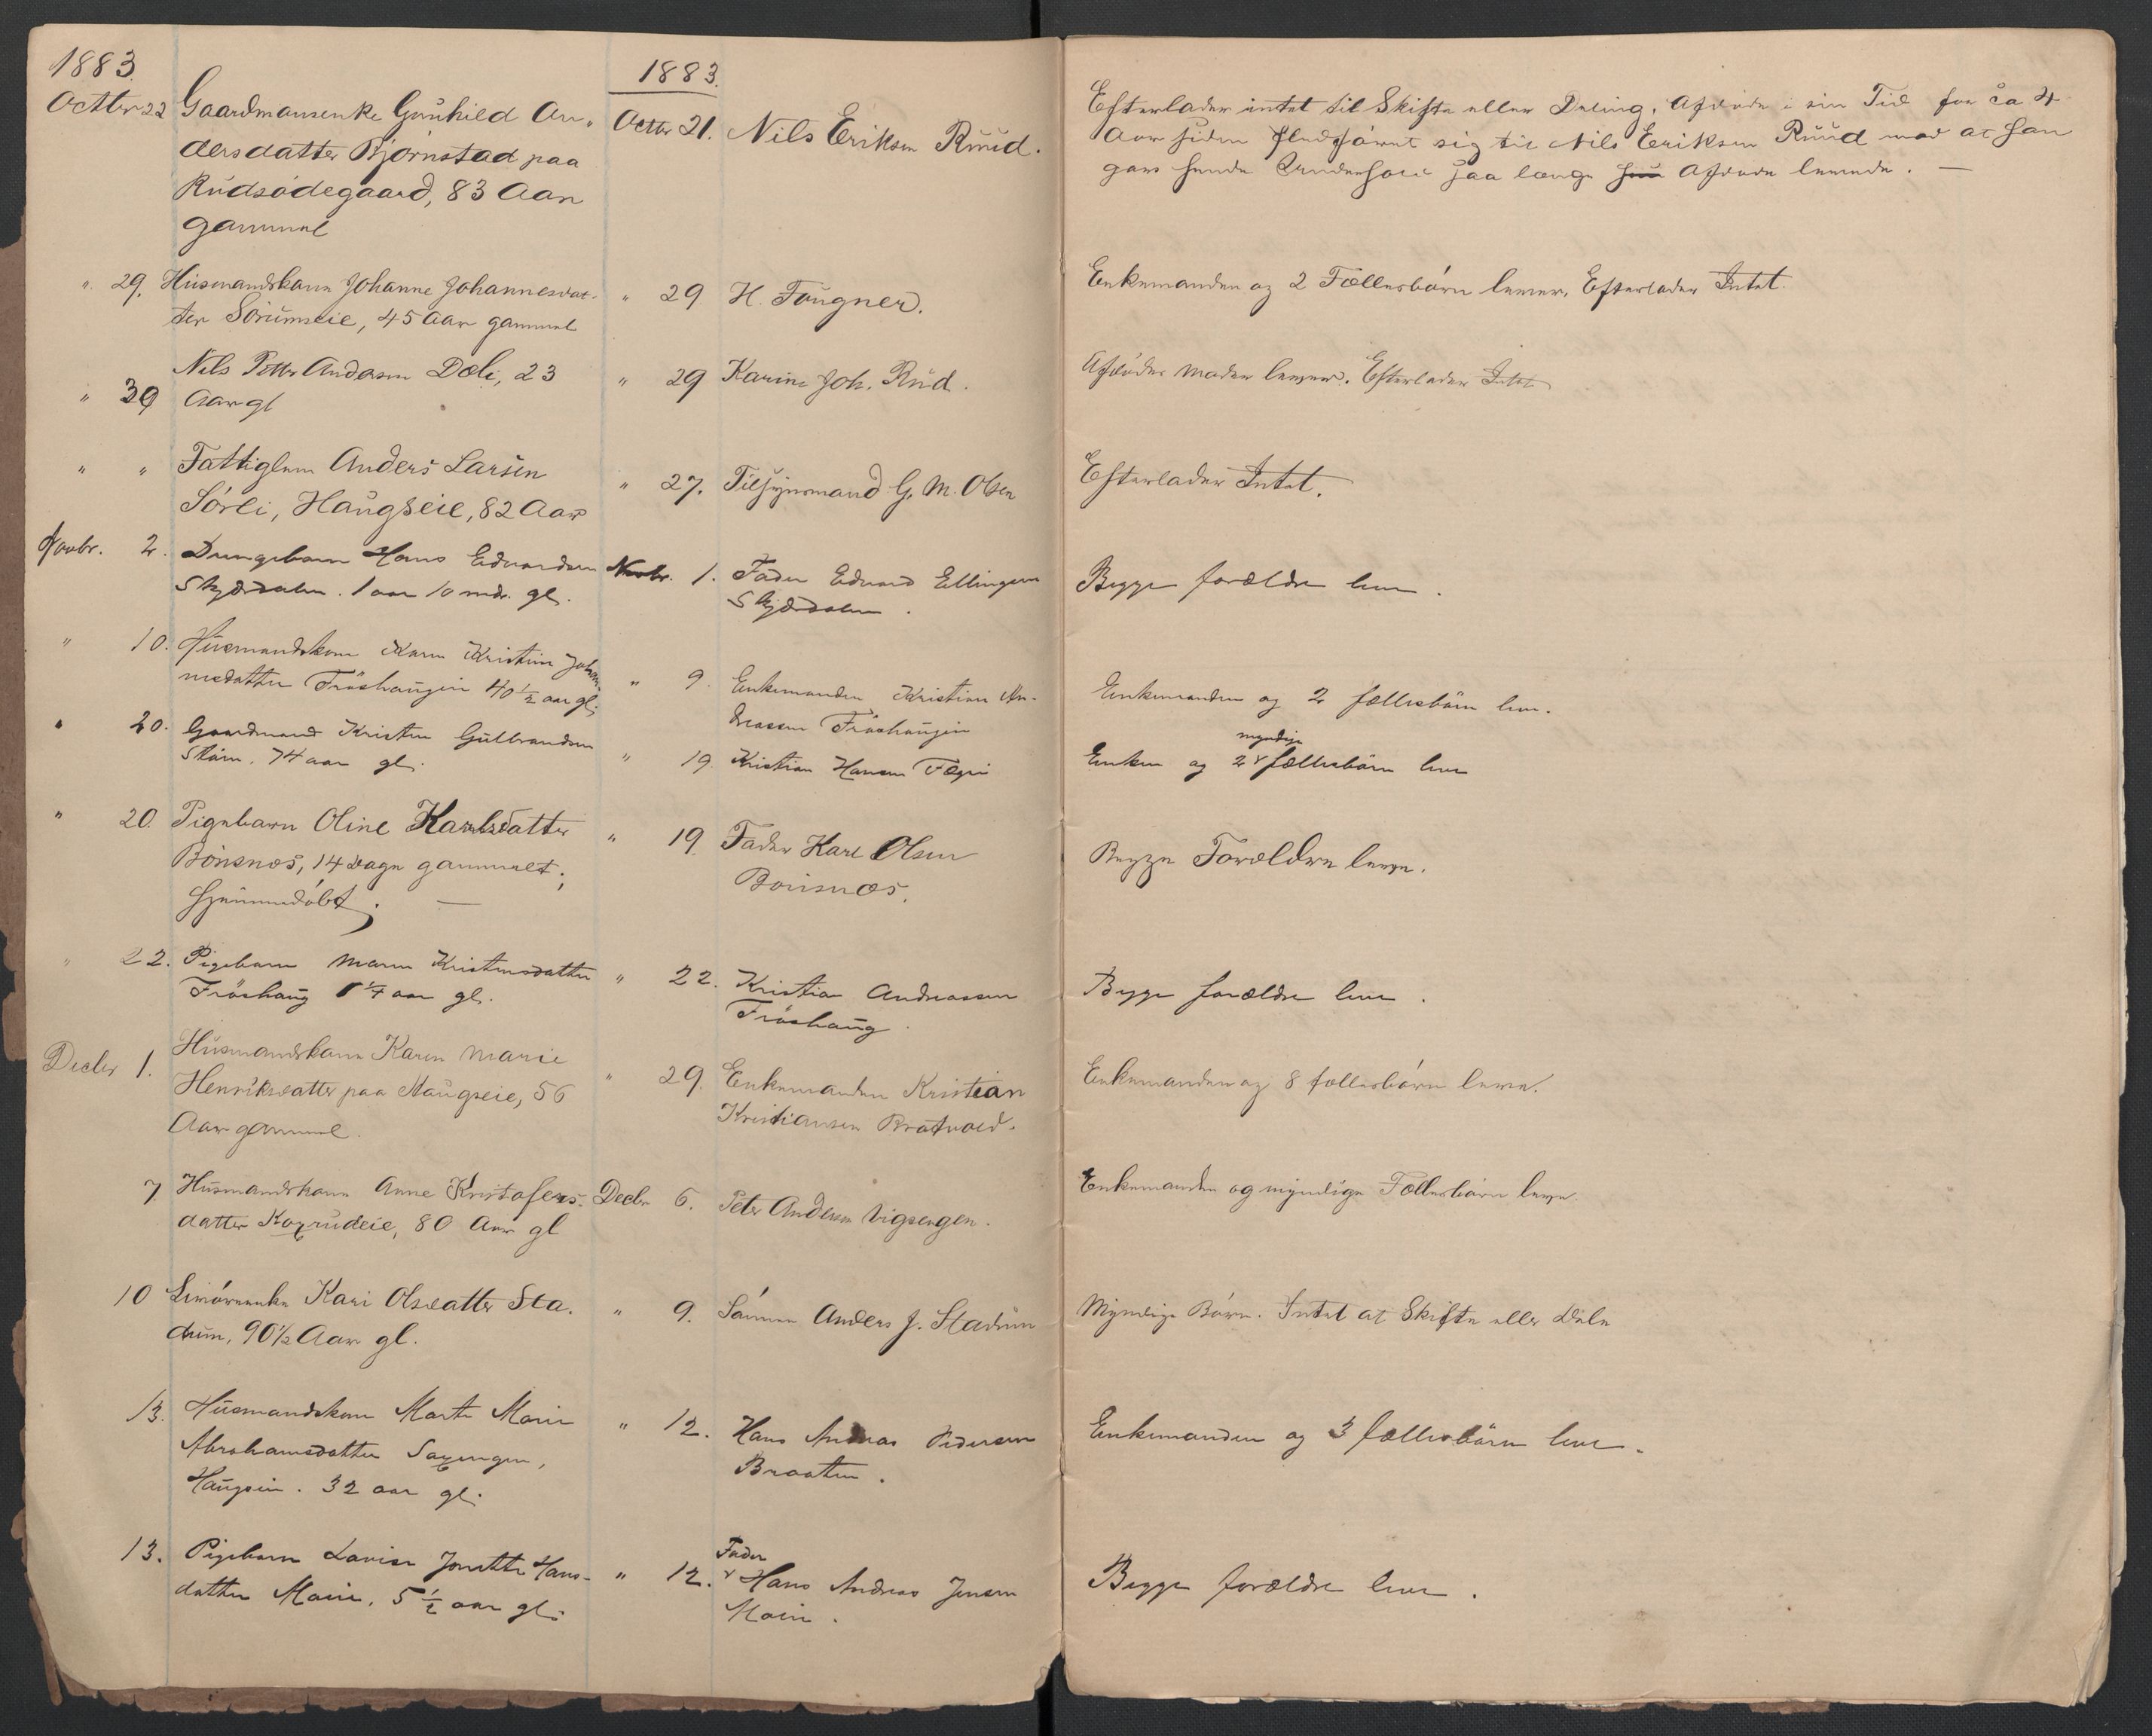 1883.
1883.
Octber 22 Gaardmansenke Gunhild An-
dersdatter Bjørnstad paa
Rudsødegaard, 83 Aar
gammel
Octbr 21. Nils Eriksen Ruud.
Efterlader intet til Skifte eller Deling. Afdøde i sin Tid for ca 4
Aar siden fledførnt sig til Nils Eriksen Ruud mod at han
gav hende Underhold saa længe hun Afdøde levede. —
" 29. Husmandskone Johanne Johannesdat-
ter Sørumseie, 45 Aar gammel
" 29 H. Fougner.
Enkemanden og 2 Fællesbørn lever. Efterlader Intet.
" 30 Nils Petter Andersen Dæli, 23
Aar gl
" 29 Karine Joh. Rud.
Afdødes Moder lever. Efterlader Intet
" " Fattiglem Anders Larsen
Sørli, Haugseie, 82 Aar
" 27. Tilsynsmand G. M. Olsen
Efterlader Intet.
Novbr. 2. Drengebarn Hans Edvardsen
Skjærdalen. 1 aar 10 mdr. gl.
Novbr. 1. Fader Edvard Ellingsen
Skjærdalen.
Begge forældre leve.
" 10. Husmandskone Karen Kristine Johan-
nesdatter Frøshaugen 40 1/2 aar gl.
" 9. Enkemanden Kristian An-
dreassen Frøshaugen
Enkemanden og 2 fællesbørn leve.
" 20. Gaardmand Kristen Gulbrandsen
Steen. 74 aar gl.
" 19 Kristian Hansen Fægri
myndige
Enken og 2 fællesbørn leve
" 20. Pigebarn Oline Karlsdatter
Bønsnæs, 14 Dage gammelt;
hjemmedøbt. —
" 19 Fader Karl Olsen
Bønsnæs.
Begge Forældre leve.
" 22. Pigebarn Maren Kristiansdatter
Frøshaug 1/4 aar gl.
" 22. Kristian Andreassen
Frøshaug.
Begge forældre leve.
Decbr 1. Husmandskone Karen Marie
Henriksdatter paa Haugseie, 56
Aar gammel.
" 29. Enkemanden Kristian
Kristiansen Bratvold.
Enkemanden og 8 fællesbørn leve.
7 Husmandskone Anne Kristofers-
datter Koxrudeie, 80 Aar gl
Decbr 6. Peter Andersen Vigsengen.
Enkemanden og myndige Fællesbørn leve.
10 Kari Olsdatter Sta-
dum, 90 1/2 Aar gl.
" 9. Sønnen Anders J. Stadum
Myndige Børn. Intet at Skifte eller Dele
13. Husmandskone Marte Marie
Abrahamsdatter Saxengen,
Haugseie. 32 aar gl.
" 12. Hans Andreas Pedersen
Braaten.
Enkemanden og 3 fællesbørn leve.
13. Pigebarn Lovise Jonette Hans-
datter Moine. 5 1/2 aar gl.
Fader
" 12. Hans Andreas Jensen
Moine.
Begge forældre leve.